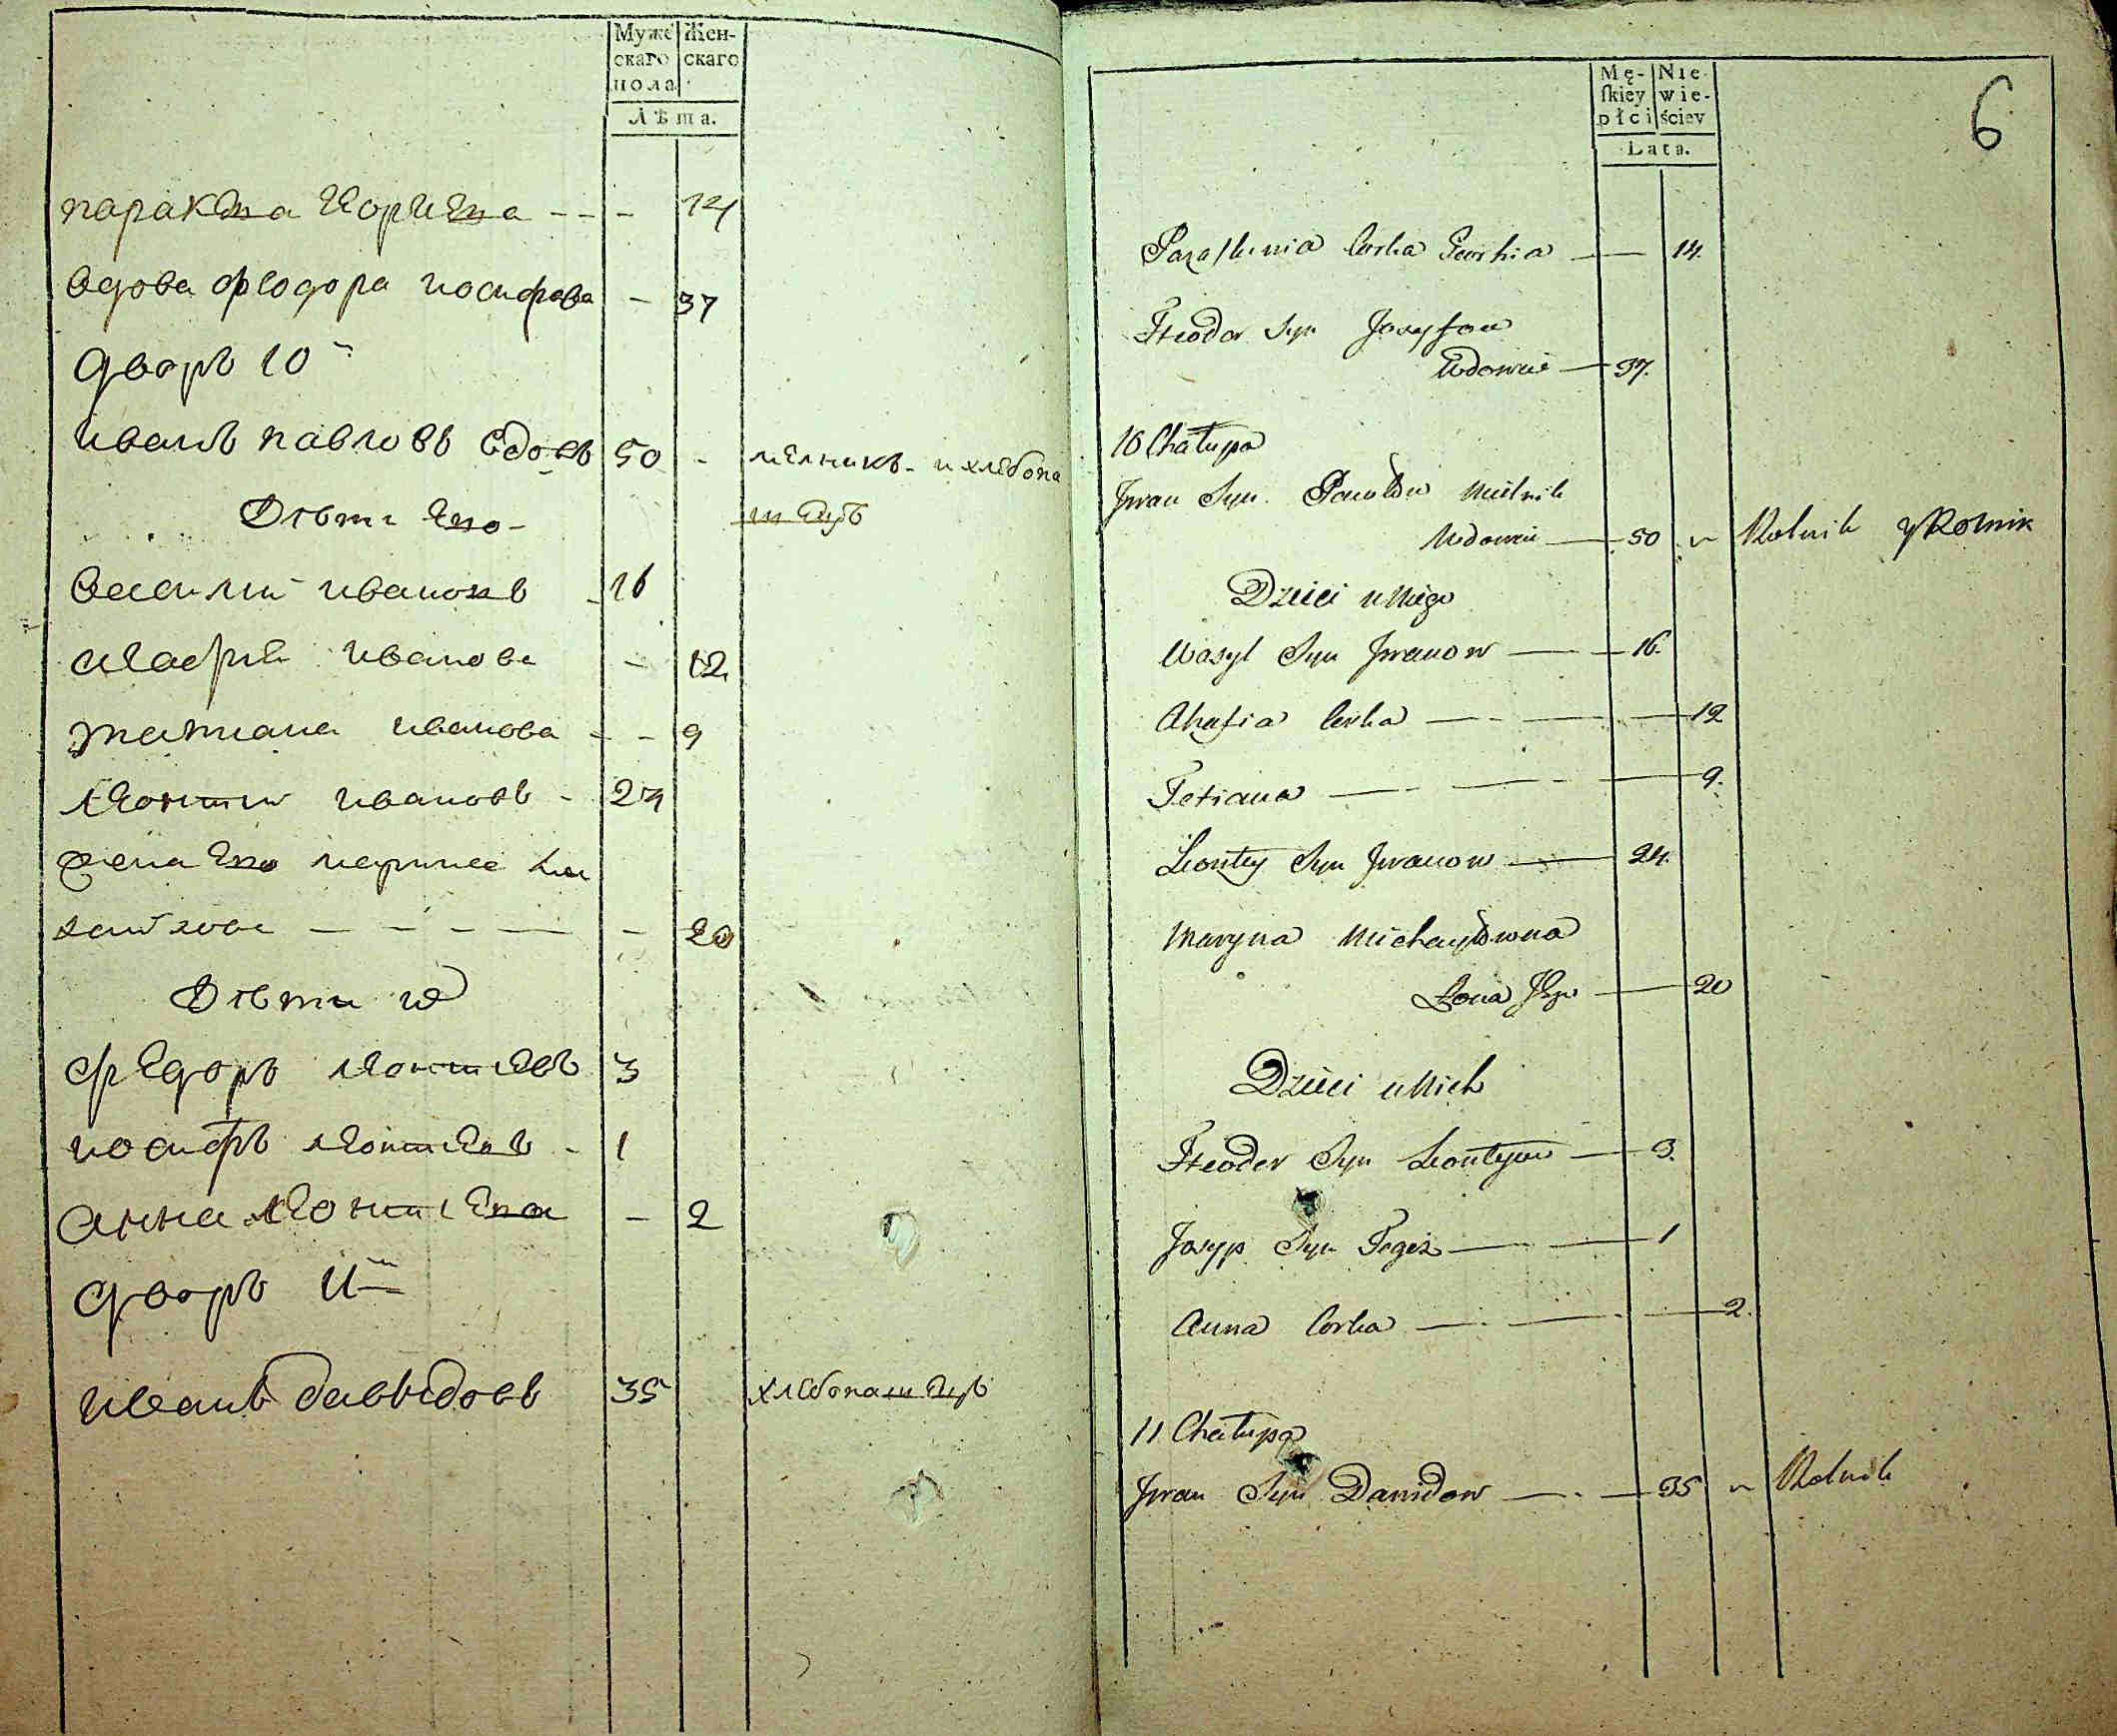 Муже
скаго
пола
Жен-
скаго
Лѣта.
парак
14
вдова феодора иосифова - 37
дворъ 10
иванъ павловъ вдовъ 50 - мелникъ и хлебопа
шецъ
Дѣти его
василий ивановъ 16
агафия иванова - 12
татиана иванова - - 9
леонтий ивановъ - 24
жена его марина ми
хайлова - - - - - 20
Дѣти их
федоръ леонтиевъ 3
иосифъ леонтиевъ - 1
анна леонтиева - 2
дворъ 11
иванъ давыдовъ 35 хлебопашецъ
Mę-
skiey
płci
Nie
wie-
ściey
Lata.
6
Corka — 14.
Theodor Syn Josyfow
Wdowiec — 37.
10 Chałupa
Jwan Syn Pawłow Mielnik
Wdowiec — 50 Rolnik y Rolnik
Dzieci u Niego
Wasyl Syn Jwanow — 16.
Ahafia Corka — 12
Tetiana — 9.
Leonty Syn Jwanow — 24.
Maryna Michayłowna
Żona Jego — 20
Dzieci u Nich
Theodor Syn Leontyow — 3.
Josyp Syn Tegoż — 1
Anna Corka — 2.
11 Chałupa
Jwan Syn Dawidow — 35 Rolnik